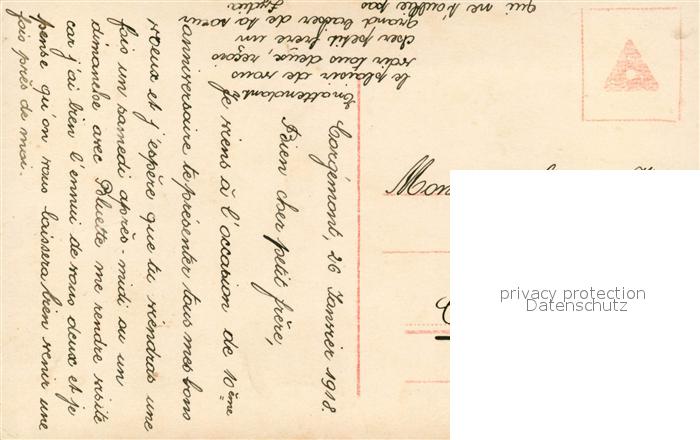 Corgémont, 26 Janvier 1918.
Bien cher petit frère,
Je viens à l'occasion de 10ème
anniversaire te présenter tous mes bons
voeux et j'espère que tu viendras une
fois un samedi après-midi ou un
dimanche avec Bluette me rendre visite
car j'ai bien l'ennui de vous deux et je
pense qu'on vous laissera bien venir une
fois près de moi.
En attendant
le plaisir de vous
voir tous deux, reçois
cher petit frère un
grand baiser de ta soeur
qui ne t'oublie pas
Lydia
Mon
privacy protection
Datenschutz